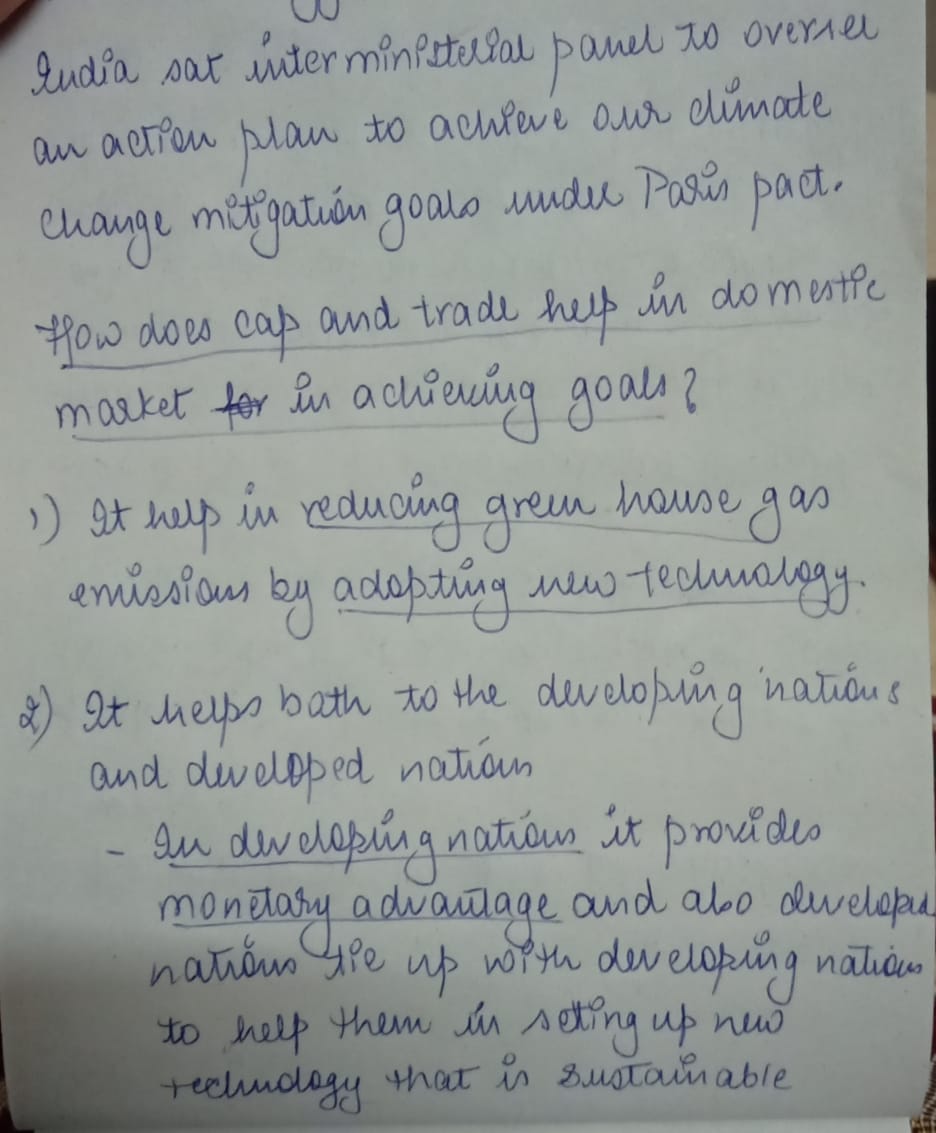 India sat interministerial panel to oversee
an action plan to achieve our climate
change mitigation goals under Paris pact.
How does cap and trade help in domestic
market for in achieving goals?
1) It help in reducing green house gas
emissions by adopting new technology.
2) It helps both to the developing nations
and developed nation
- In developing nations it provides
monetary advantage and also developed
nations tie up with developing nations
to help them in seting up new
technology that is sustainable